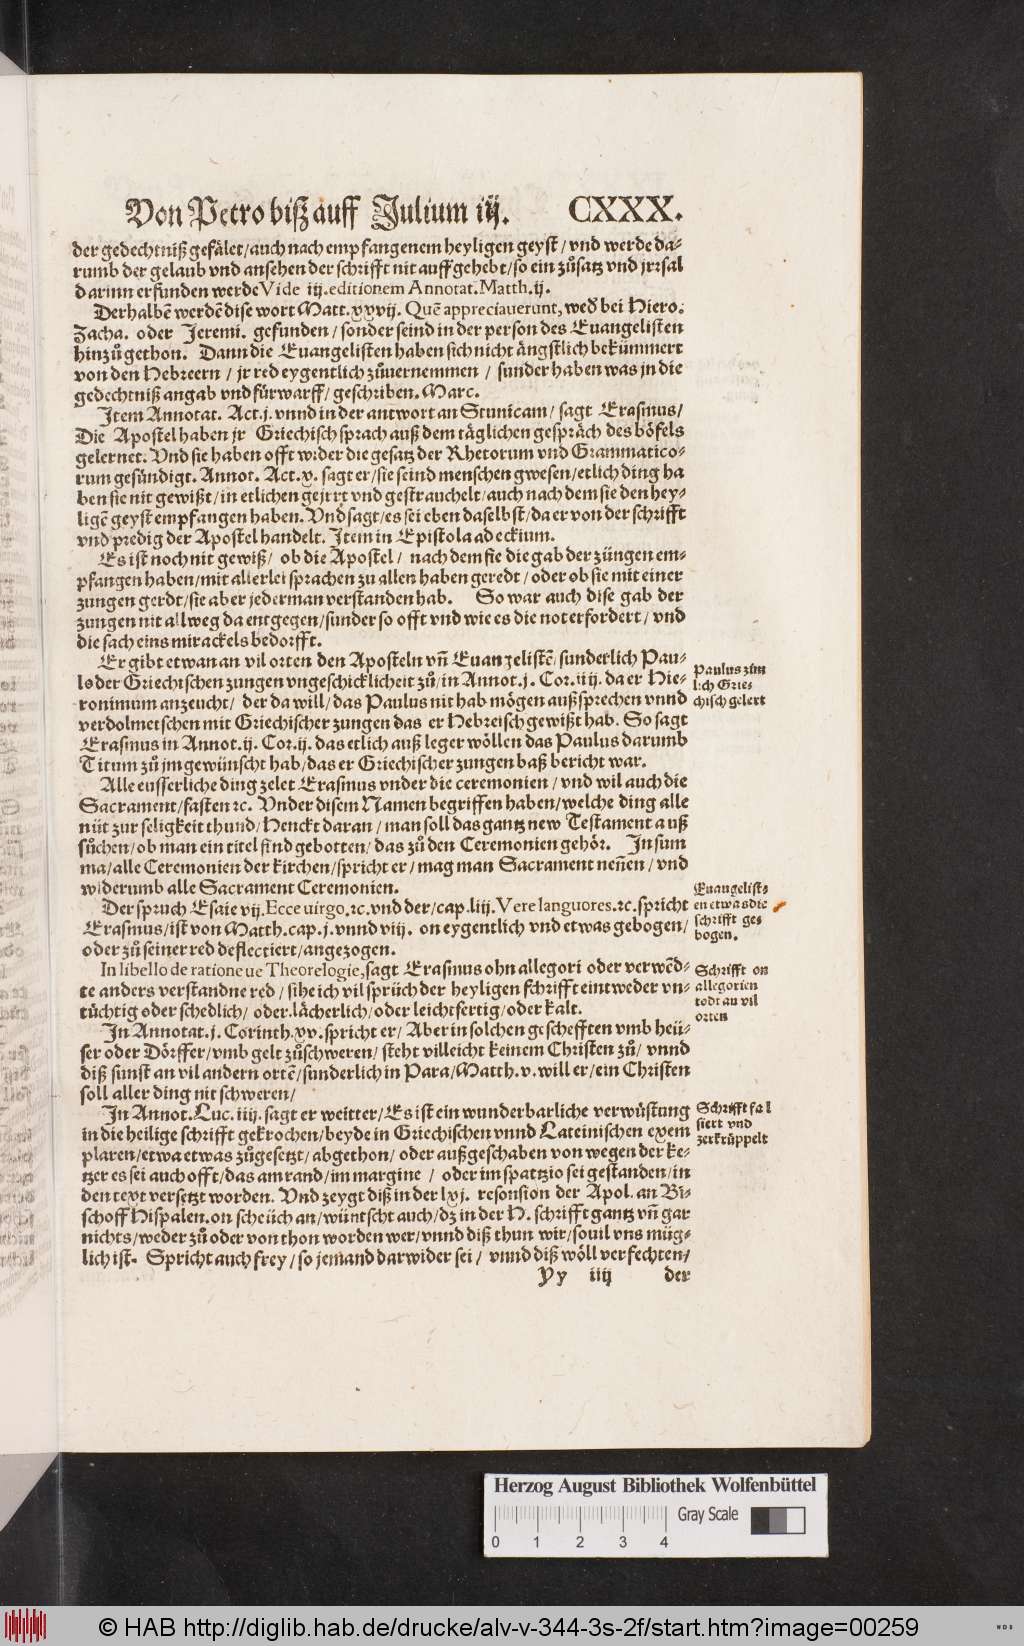 Von Petro biß auff Julium iij. CXXX.
der gedechtniß gefälet/auch nach empfangenem heyligen geyst/vnd werde da-
rumb der gelaub vnd ansehen der schrifft nit auffgehebt/so ein zůsatz vnd jrrsal
darinn erfunden werde Vide iij.editionem Annotat.Matth.ij.
Derhalbē werdē dise wort Matt.xxvij. Quē appreciauerunt, wed̄ bei Hiero.
Zacha. oder Jeremi. gefunden/sonder seind in der person des Euangelisten
hinzů gethon. Dann die Euangelisten haben sich nicht ängstlich bekümmert
von den Hebreern/jr red eygentlich zůuernemmen/sunder haben was jn die
gedechtniß angab vnd fürwarff/geschriben. Marc.
Item Annotat. Act.j. vnnd in der antwort an Stunicam/sagt Erasmus/
Die Apostel haben jr Griechisch sprach auß dem täglichen gespräch des böfels
gelernet. Vnd sie haben offt wider die gesatz der Rhetorum vnd Grammatico-
rum gesündigt. Annot. Act.x. sagt er/sie seind menschen gwesen/etlich ding ha
ben sie nit gewißt/in etlichen gejrrt vnd gestrauchelt/auch nach dem sie den hey-
ligē geyst empfangen haben. Vnd sagt/es sei eben daselbst/da er von der schrifft
vnd predig der Apostel handelt. Item in Epistola ad eckium.
Es ist noch nit gewiß/ ob die Apostel/ nach dem sie die gab der züngen em-
pfangen haben/mit allerlei sprachen zu allen haben geredt/oder ob sie mit einer
zungen gerdt/sie aber jederman verstanden hab. So war auch dise gab der
zungen nit allweg da entgegen/sunder so offt vnd wie es die not erfordert/vnd
die sach eins mirackels bedorfft.
Er gibt etwan an vil orten den Aposteln vñ Euangelistē/sunderlich Pau-
ls der Griechischen zungen vngeschicklicheit zů/in Annot.j. Cor.iiij. da er Hie-
ronimum anzeucht/ der da will/das Paulus nit hab mögen außsprechen vnnd
verdolmetschen mit Griechischer zungen das er Hebreisch gewißt hab. So sagt
Erasmus in Annot.ij. Cor.ij. das etlich auß leger wöllen das Paulus darumb
Titum zů jm gewünscht hab/das er Griechischer zungen baß bericht war.
Alle eusserliche ding zelet Erasmus vnder die ceremonien/vnd wil auch die
Sacrament/fasten ꝛc. Vnder disem Namen begriffen haben/welche ding alle
nüt zur seligkeit thund/Henckt daran/man soll das gantz new Testament auß
sůchen/ob man ein titel find gebotten/das zů den Ceremonien gehör. In sum
ma/alle Ceremonien der kirchen/spricht er/mag man Sacrament neñen/vnd
widerumb alle Sacrament Ceremonien.
Der spruch Esaie vij. Ecce uirgo.ꝛc.vnd der/cap.liij. Vere languores.ꝛc.spricht
Erasmus/ist von Matth.cap.j.vnnd viij. on eygentlich vnd etwas gebogen/
oder zů seiner red deflectiert/angezogen.
In libello de ratione ue Theorelogie, sagt Erasmus ohn allegori oder verwēd-
te anders verstandne red/sihe ich vil sprüch der heyligen schrifft eintweder vn-
tüchtig oder schedlich/ oder lächerlich/oder leichtfertig/oder kalt.
In Annotat.j. Corinth.xv. spricht er/ Aber in solchen geschefften vmb heü-
ser oder Dörffer/vmb gelt zůschweren/ steht villeicht keinem Christen zů/ vnnd
diß sunst an vil andern ortē/sunderlich in Para/Matth.v. will er/ein Christen
soll aller ding nit schweren/
In Annot.Luc.iiij. sagt er weitter/Es ist ein wunderbarliche verwüstung
in die heilige schrifft gekrochen/beyde in Griechischen vnnd Lateinischen exem
plaren/etwa etwas zůgesetzt/abgethon/ oder außgeschaben von wegen der ke-
tzer es sei auch offt/das am rand/im margine/ oder im spattzio sei gestanden/in
den text versetzt worden. Vnd zeygt diß in der lxj. resonsion der Apol. an Bi-
schoff Hispalen.on scheüch an/wüntscht auch/dz in der H. schrifft gantz vñ gar
nichts/weder zů oder von thon worden wer/vnnd diß thun wir/souil vns müg-
lich ist. Spricht auch frey/so jemand darwider sei/ vnnd diß wöll verfechten/
Yy iiij der
Paulus zim
lich Grie-
chisch gelert
Euangelist-
en etwas die
schrifft ge-
bogen.
Schrifft on
allegorien
todt an vil
orten
Schrifft fal
siert vnd
zerkrüppelt
Herzog August Bibliothek Wolfenbüttel
Gray Scale
0 1 2 3 4
© HAB http://diglib.hab.de/drucke/alv-v-344-3s-2f/start.htm?image=00259